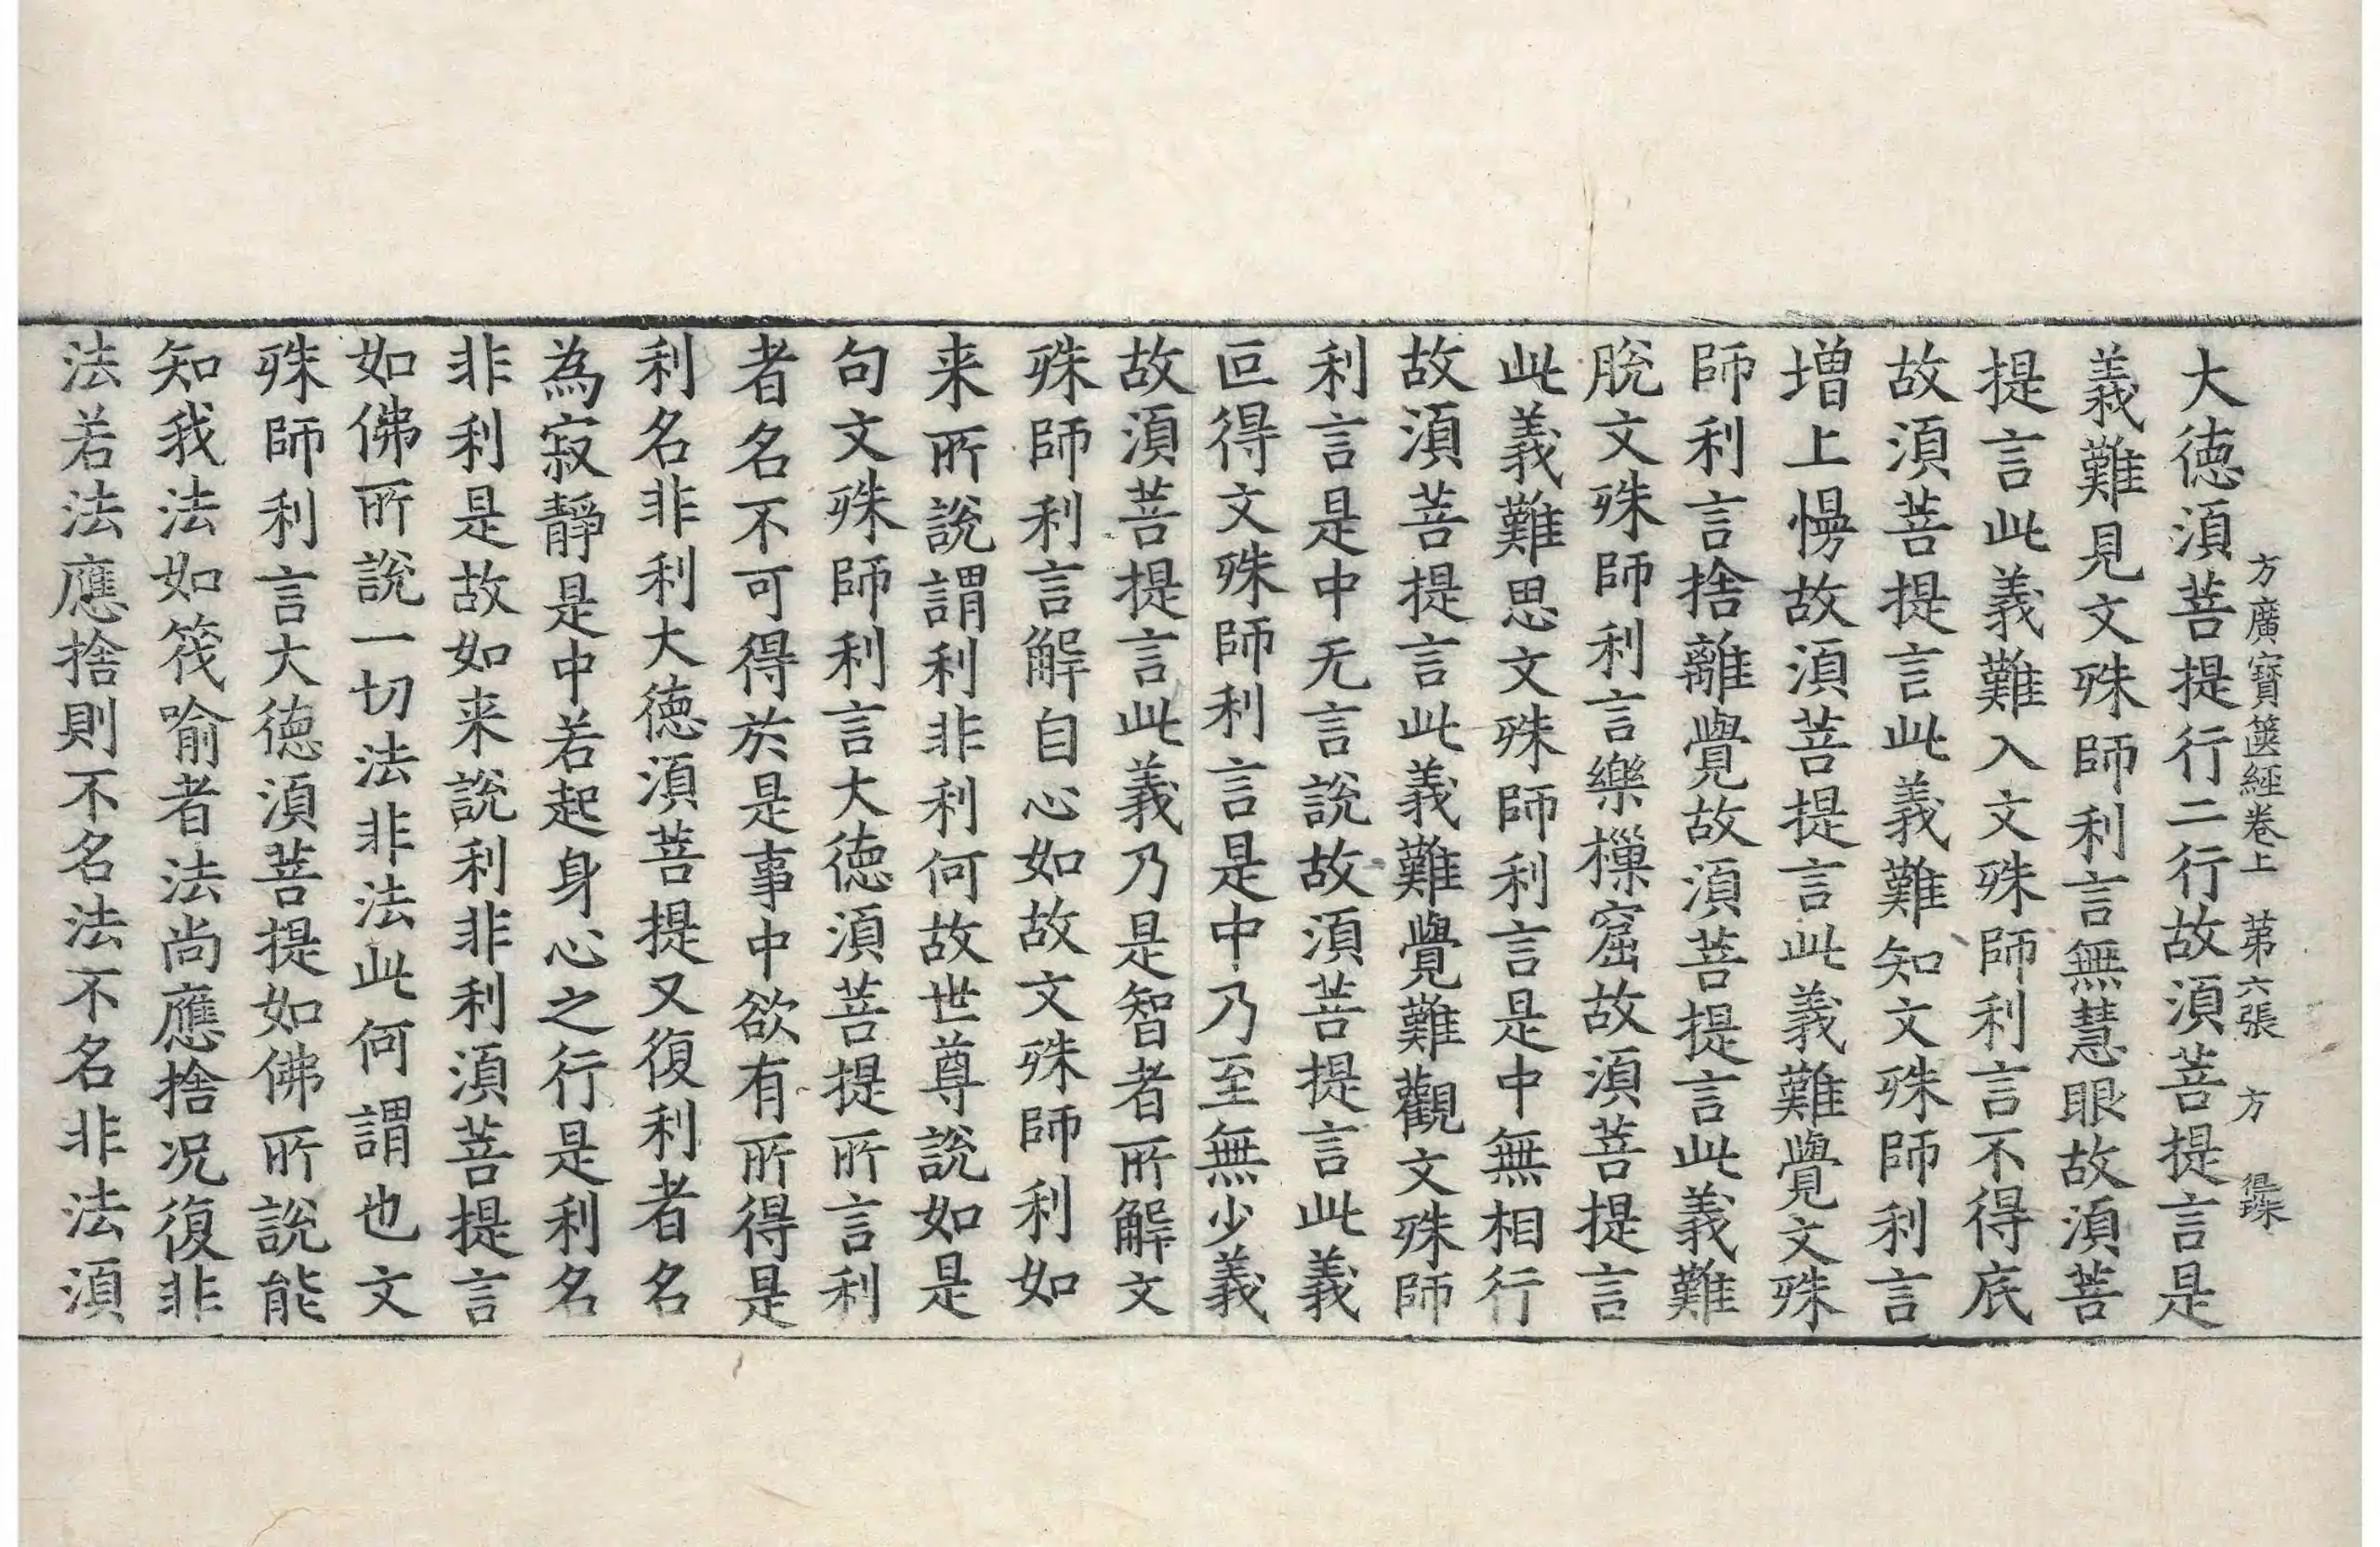 方廣寶篋經卷上　第六張　方
大徳湏菩提行二行故湏菩提言是
義難見文殊師利言無慧眼故湏菩
提言此義難入文殊師利言不得底
故湏菩提言此義難知文殊師利言
增上慢故湏菩提言此義難覺文殊
師利言捨離覺故湏菩提言此義難
脫文殊師利言樂樔窟故湏菩提言
此義難思文殊師利言是中無相行
故湏菩提言此義難覺難觀文殊師
利言是中无言說故湏菩提言此義
叵得文殊師利言是中乃至無少義
故湏菩提言此義乃是智者所解文
殊師利言解自心如故文殊師利如
来所說謂利非利何故世尊說如是
句文殊師利言大徳湏菩提所言利
者名不可得於是事中欲有所得是
利名非利大徳湏菩提又復利者名
為寂靜是中若起身心之行是利名
非利是故如来說利非利湏菩提言
如佛所說一切法非法此何謂也文
殊師利言大徳湏菩提如佛所說能
知我法如筏喻者法尚應捨况復非
法若法應捨則不名法不名非法湏